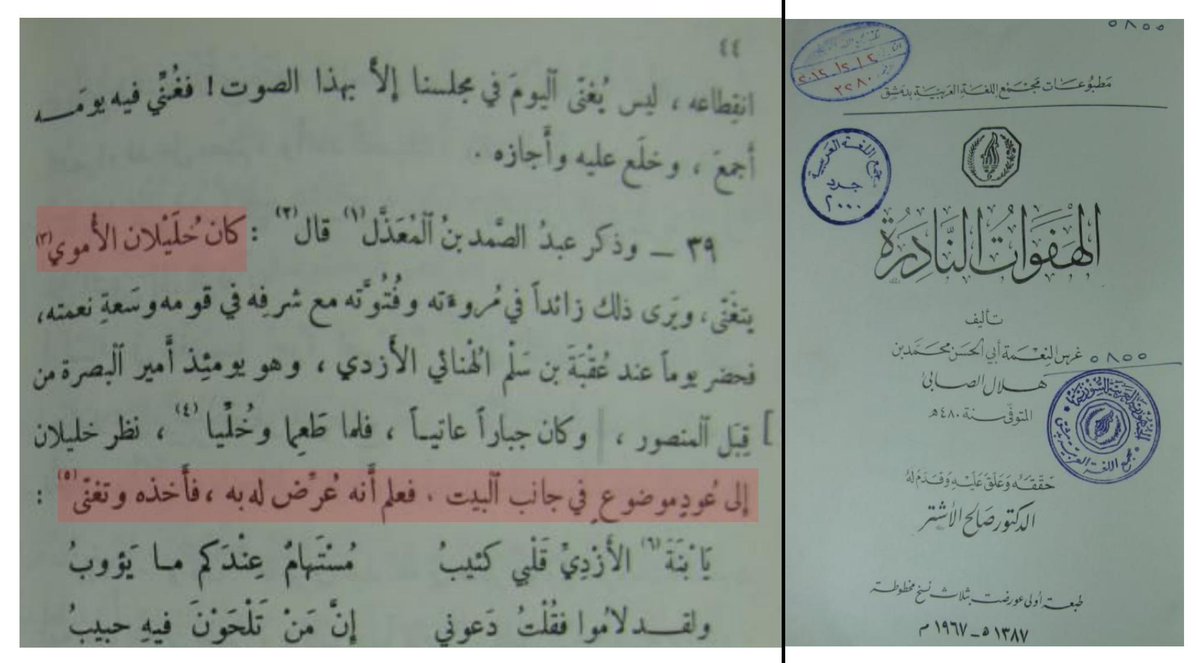 ٤٤
انقِطاعه ، ليس يُغنّى اَليومَ في مجلسنا إلاَّ بهذا الصوت ! فغُنِّي فيه يومَـه
أجمعَ ، وخلَع عليه وأجازه .
٣٩ ــ وذكر عبدُ الصَّمد بنُ اَلمُعَذَّل (١) قال (٢) : كان خُلَيْلان الأموي (٣)
يتغَنّى، ويَرى ذلك زائداً في مُروءته وفُتُوَّته مع شرفِه في قومه وسَعةِ نعمته،
فحضر يوماً عند عُقْبَةَ بن سَلْم الهُنائي الأزدي ، وهو يومئِذ أمير اَلبصرة من
] قِبَل اَلمنصور ، | وكان جباراً عاتيـاً ، فلما طَعِما وخُلِّيا (٤) ، نظر خليلان
إلى عُودٍ موضوعٍ في جانب اَلبيت . فعلم أنه عُرِّض له به ، فأخذه وتغنّى (٥) :
يَا بْنَةَ (٦) الأَزْدِيِّ قَلْبي كئيبُ مُسْتَهامٌ عِنْدَكم مـا يَؤوبُ
ولقـد لامُوا فقُلْتُ دَعوني إنَّ مَنْ تَلْحَوْنَ فيهِ حبيبُ
٥٨٠٠
مَطبُوعَات مَجْمَع اللغَة العَرَبيَّة بدمَشق
مجمع اللغة العربية
جرد
٢٠٠٠
الهَفَوَاتُ النَّادِرَة
تأليف
غرس النعْمَة أبي الحسَن محمّد بن
٥٨٠٠
هلال الصابئ
المتوفى سنة ٤٨٠ هـ
حَقّقَهُ وَعَلّقَ عَلَيْهِ وَقَدّمَ لَهُ
الدكتور صَالح الأشتر
طبعة أولى عورضت بثلاث نسخ مخطوطة
١٣٨٧ هـ - ١٩٦٧ م